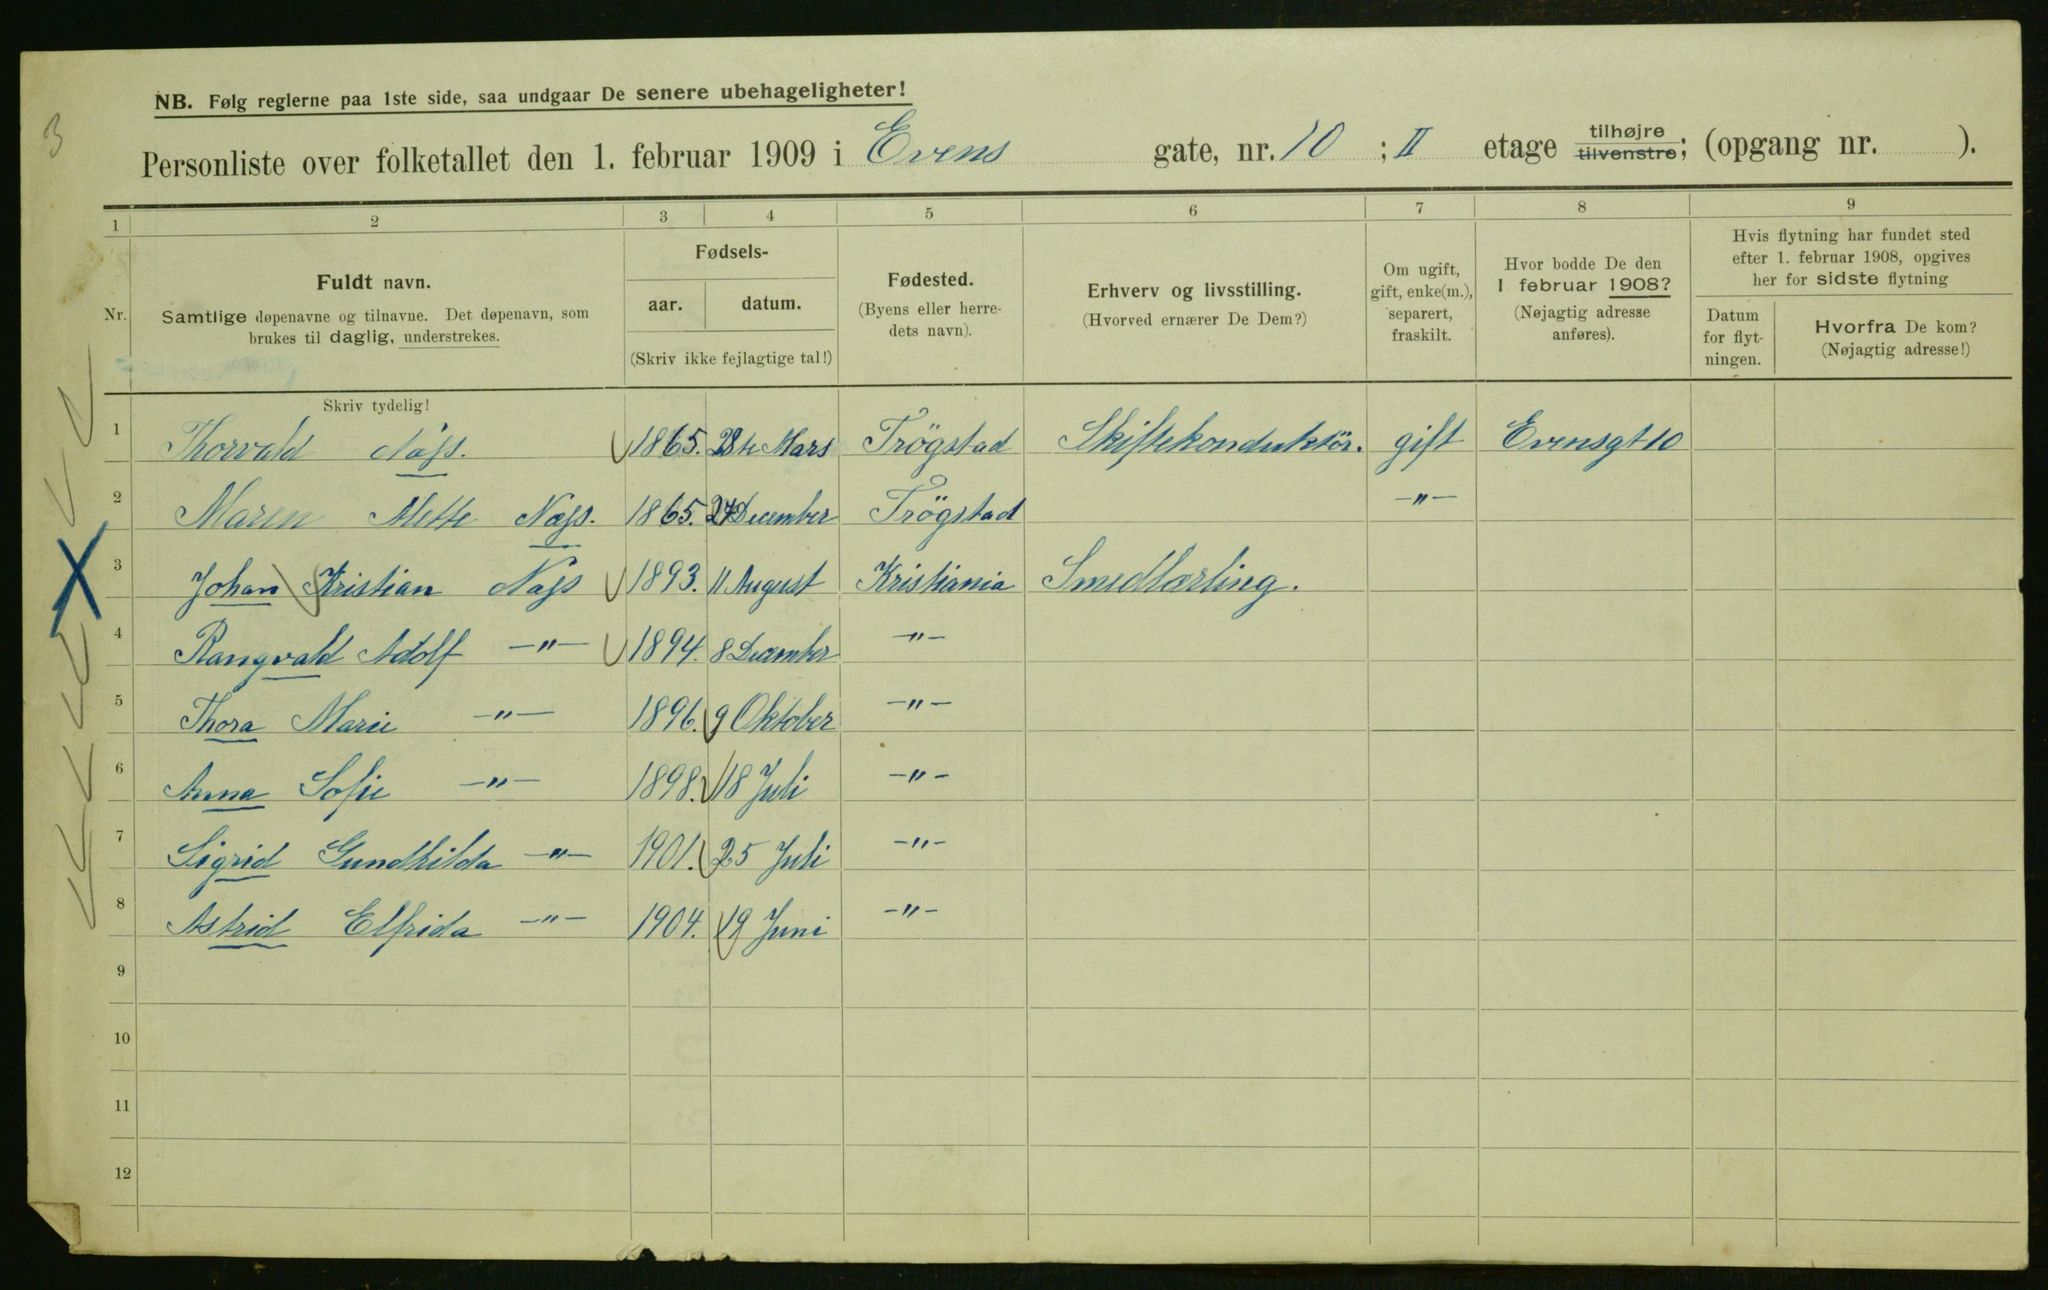 3
NB. Følg reglerne paa 1ste side, saa undgaar De senere ubehageligheter!
Personliste over folketallet den 1. februar 1909 i Evens gate, nr. 10 ; II etage tilhøjre tilvenstre; (opgang nr. ).
1 2 3 4 5 6 7 8 9
Nr.
Fuldt navn.
Samtlige døpenavne og tilnavne. Det døpenavn, som
brukes til daglig, understrekes.
Fødsels-
aar. datum.
(Skriv ikke fejlagtige tal!)
Fødested.
(Byens eller herre-
dets navn).
Erhverv og livsstilling.
(Hvorved ernærer De Dem?)
Om ugift,
gift, enke(m.),
separert,
fraskilt.
Hvor bodde De den
1 februar 1908?
(Nøjagtig adresse
anføres).
Hvis flytning har fundet sted
efter 1. februar 1908, opgives
her for sidste flytning
Datum
for flyt-
ningen.
Hvorfra De kom?
(Nøjagtig adresse!)
Skriv tydelig!
1 Thorvald Næss. 1865. 28de Mars Trögstad Skiftekonduktör. gift Evensgt 10
2 Maren Mette Næss. 1865. 27 December Trögstad —"—
3 Johan Kristian Næss 1893. 11 August Kristiania Smedlærling.
4 Rangvald Adolf —"— 1894. 8 December —"—
5 Thora Marie —"— 1896. 9 Oktober —"—
6 Anna Sofie —"— 1898. 18 Juli —"—
7 Sigrid Gundhilda —"— 1901. 25 Juli —"—
8 Astrid Elfrida —"— 1904. 19 Juni —"—
9
10
11
12